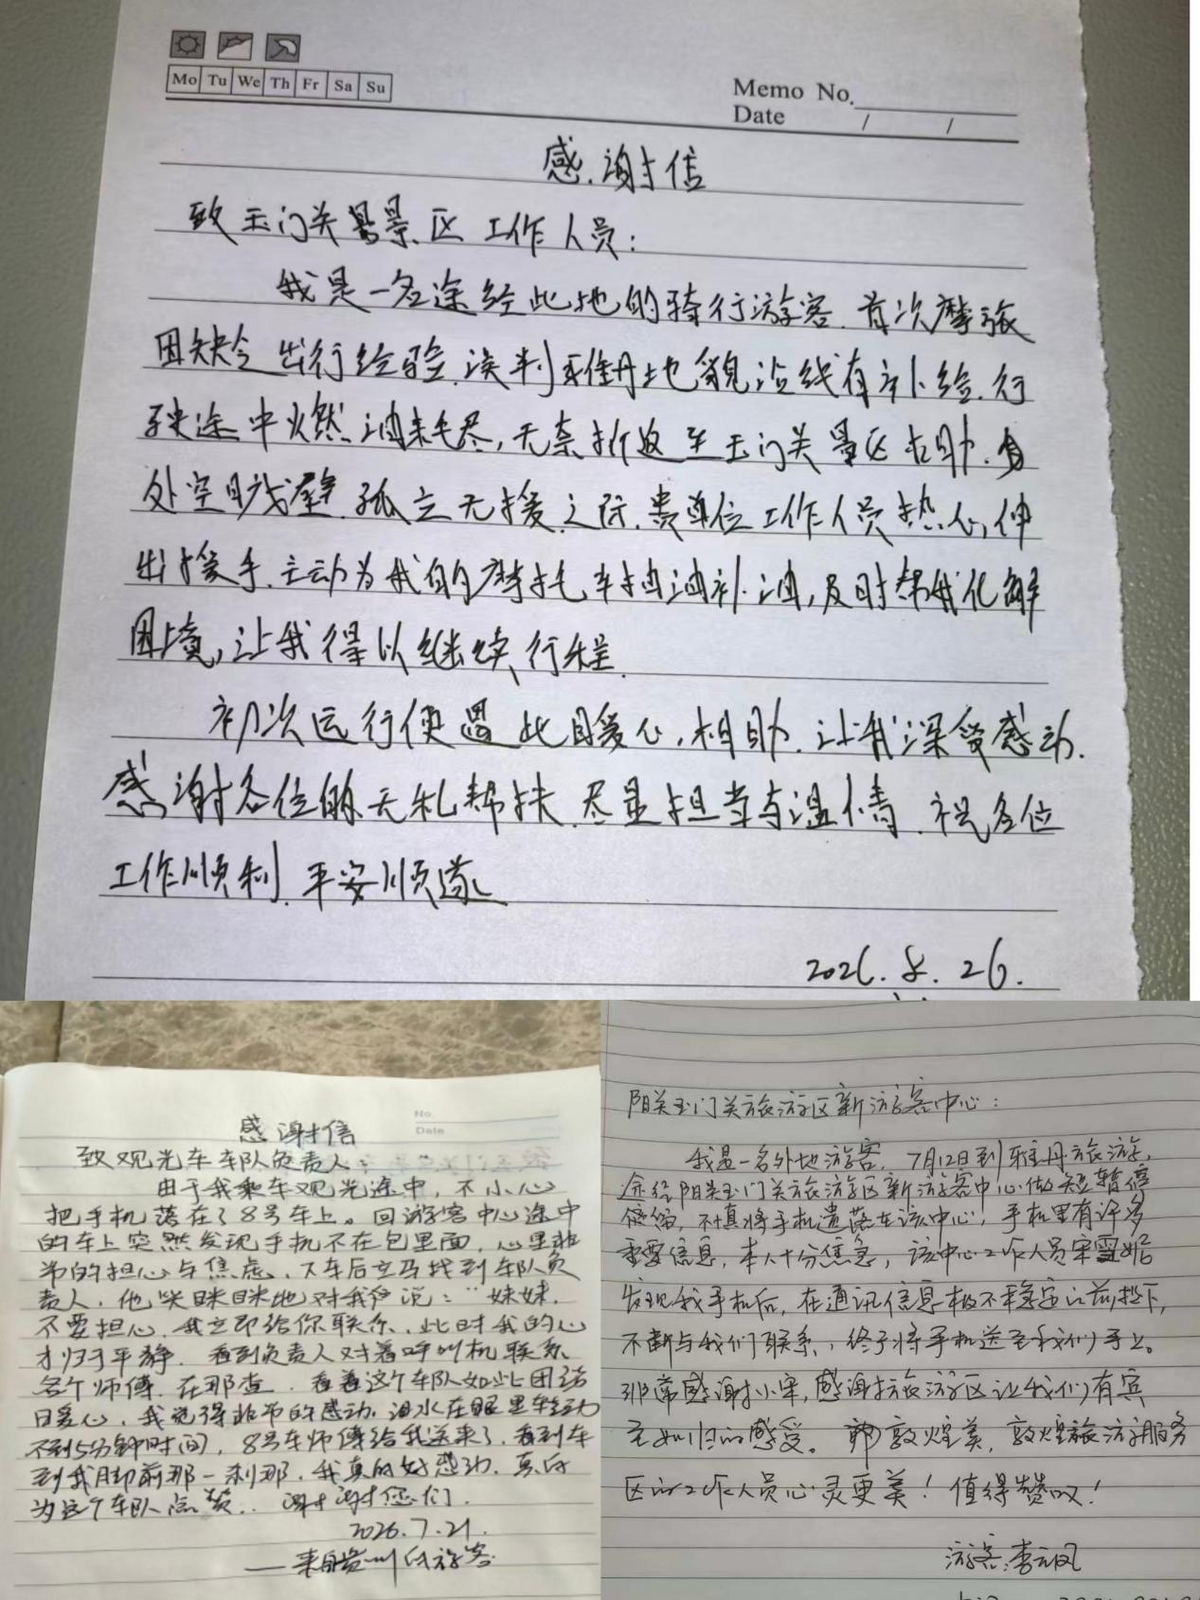 Mo Tu We Th Fr Sa Su
Memo No.
Date / /
感谢信
致玉门关景区工作人员：
我是一名途经此地的骑行游客.首次摩旅
因缺令出行经验.误判雅丹地貌沿线有补给.行
驶途中燃油耗尽,无奈折返至玉门关景区求助.身
处空旷戈壁.孤立无援之际.贵单位工作人员热心伸
出援手.主动为我的摩托车抽油补油,及时帮我化解
困境,让我得以继续行程.
初次远行便遇此暖心相助.让我深受感动.
感谢各位的无私帮扶.尽显担当与温情.祝各位
工作顺利.平安顺遂
2026.8.26.
No.
Date
感谢信
致观光车车队负责人：
由于我乘车观光途中，不小心
把手机落在了8号车上。回游客中心途中
的车上突然发现手机不在包里面，心里非
常的担心与焦虑，下车后立马找到车队负
责人，他笑眯眯地对我说：“妹妹，
不要担心，我立即给你联系，此时我的心
才归于平静.看到负责人对着呼叫机联系
各个师傅.在那查.看着这个车队如此团结
暖心，我觉得非常的感动.泪水在眼里转动
不到5分钟时间，8号车师傅给我送来了.看到车
到我脚前那一刹那.我真的好感动.真的
为这个车队点赞..谢谢您们.
2026.7.21.
——来自贵州的游客
阳关玉门关旅游区新游客中心：
我是一名外地游客，7月12日到雅丹旅游，
途经阳关玉门关旅游区新游客中心做短暂停
停留，不慎将手机遗落在该中心，手机里有许多
重要信息，本人十分焦急，该中心工作人员宋雪
发现我手机后，在通讯信息极不稳定的前提下，
不断与我们联系，终于将手机送至我们手上。
非常感谢小宋，感谢旅游区让我们有宾
至如归的感受。 敦煌美，敦煌旅游服务
区的工作人员心灵更美！值得赞叹！
游客：李